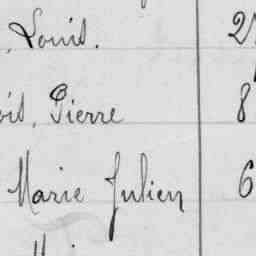 , Louis. 2
ois, Pierre 8
Marie Julien 6